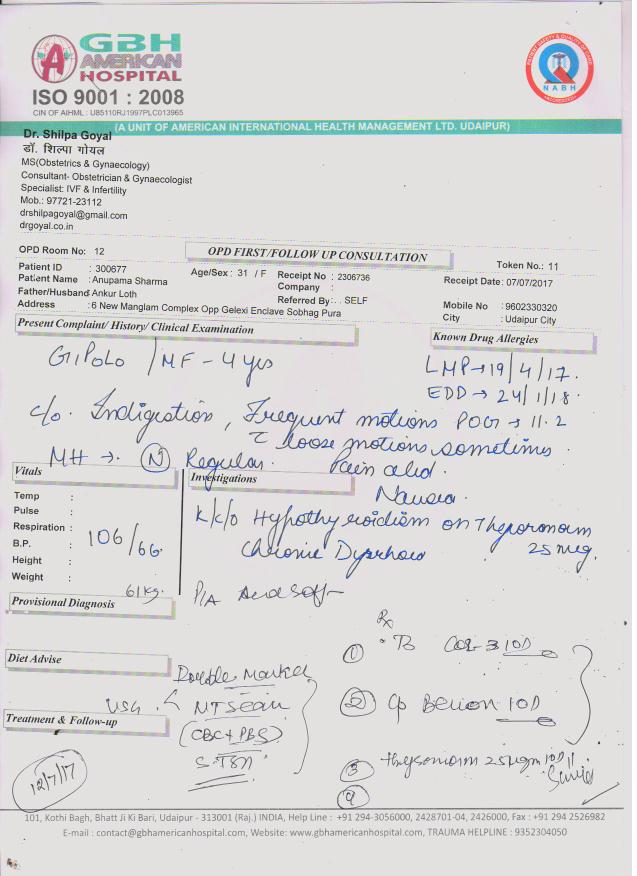 GBH
AMERICAN
HOSPITAL
ISO 9001 : 2008
CIN OF AIHML : U85110RJ1997PLC013965
PATIENT SAFETY & QUALITY OF CARE
NABH
ACCREDITATION
(A UNIT OF AMERICAN INTERNATIONAL HEALTH MANAGEMENT LTD. UDAIPUR)
Dr. Shilpa Goyal
डॉ. शिल्पा गोयल
MS(Obstetrics & Gynaecology)
Consultant- Obstetrician & Gynaecologist
Specialist: IVF & Infertility
Mob.: 97721-23112
drshilpagoyal@gmail.com
drgoyal.co.in
OPD Room No: 12
OPD FIRST/FOLLOW UP CONSULTATION
Token No.: 11
Patient ID : 300677
Age/Sex : 31 / F
Receipt No : 2306736
Receipt Date: 07/07/2017
Patient Name : Anupama Sharma
Company :
Father/Husband Ankur Loth
Referred By : . SELF
Mobile No : 9602330320
Address : 6 New Manglam Complex Opp Gelexi Enclave Sobhag Pura
City : Udaipur City
Present Complaint/ History/ Clinical Examination
Known Drug Allergies
G1P0L0 / MF - 4 yrs
LMP → 19/4/17.
EDD → 24/1/18.
c/o. Indigestion, Frequent motions POG → 11.2
loose motions sometimes.
MH → (N) Regular. Pain abd.
Nausea.
Vitals
Investigations
Temp :
Pulse :
Respiration :
B.P. : 106/66
Height :
Weight : 61kg.
K/k/o Hypothyroidism on
25 mcg.
Chronic
P/A soft
Provisional Diagnosis
Rx
① Tb
Diet Advise
Double Marker
USG NT Scan
② Cp 1OD
Treatment & Follow-up
(CBC + PBS)
S. TSH
③ 25 mcg 1OD
④
12/7/17
101, Kothi Bagh, Bhatt Ji Ki Bari, Udaipur - 313001 (Raj.) INDIA, Help Line : +91 294-3056000, 2428701-04, 2426000, Fax : +91 294 2526982
E-mail : contact@gbhamericanhospital.com, Website: www.gbhamericanhospital.com, TRAUMA HELPLINE : 9352304050